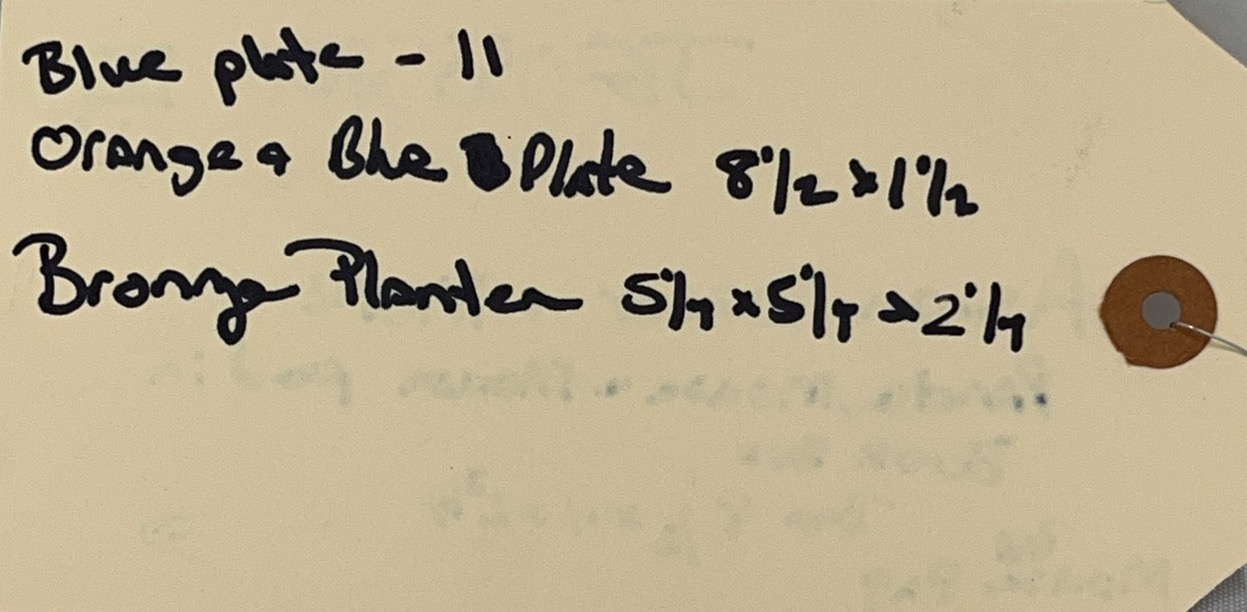 Blue plate - 11
Orange & Blue Plate 8 1/2 x 1 1/2
Bronze Planter 5 1/4 x 5 1/4 x 2 1/4